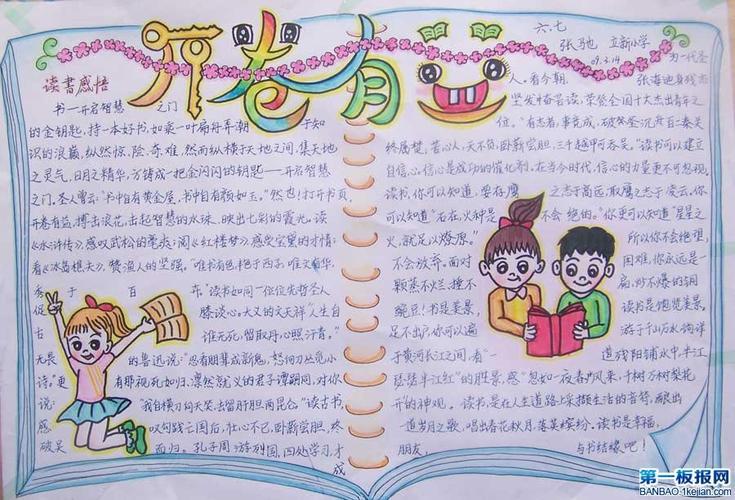 开卷有益
六.七
张驰 立新小学
09.3.14
读书感悟
书—开启智慧 之门
的金钥匙,持一本好书,如乘一叶扁舟弄潮 于知
识的浪巅,纵然惊、险、奇、难,然而纵横于天地之间,集天地
之灵气,日月之精华,方铸成一把金闪闪的钥匙——开启智慧
之门,圣人曾云:“书中自有黄金屋,书中自有颜如玉。”然也!打开书页,
开卷有益,搏击浪花,击起智慧的水珠,映出七彩的霞光,读
《水浒传》,感叹武松的豪爽;阅《红楼梦》,感受宝黛的才情;
看《冰岛渔夫》,赞渔人的坚强。“唯书有色,艳于西子,唯文有华,
秀 于 百 卉。”读书如同一位位先哲圣人
促 膝谈心。大义的文天祥“人生自
古 谁无死,留取丹心照汗青。”
无畏 的鲁迅说:“忍看朋辈成新鬼,怒向刀丛觅小
诗。”更 有那视死如归,凛然就义的君子谭嗣同,对你
说: “我自横刀向天笑,去留肝胆两昆仑。”读古书
感 叹勾践亡国后,壮心不已,卧薪尝胆,终
破吴 而归。孔子周游列国,四处学习,才
成
为一代圣
人,看今朝, 张海迪身残志
坚发奋苦读,荣登全国十大杰出青年之
位。“有志者,事竟成,破釜沉舟百二秦关
终属楚,苦心人,天不负,卧薪尝胆,三千越甲可吞吴。”读书可以建立
自信心,信心是成功的催化剂,在当今时代,信心的力量更不可忽视,
读书,你可以知道,要存鹰 之志于高远,取鹰之志于凌云,你
可以知道“石在,火种是 不会 绝的。”你更可以知道“星星之
火,就足以燎原。” 所以你不会绝望,
不会放弃。面对 困难,你永远是一
颗蒸不烂、捶不 扁、炒不爆的铜
豌豆!书是美景, 读书是饱览美景,
足不出户你可以遍 游千山万水,徜徉
于黄河长江之间,看“一 道残阳铺水中,半江
瑟瑟半江红”的胜景,感“忽如一夜春风来,千树万树梨花
开”的神观。 读书,是在人生道路上采撷生活的音符,酿出
一首岁月之歌,唱出春花秋月,落英缤纷。读书是幸福,
朋友, 与书结缘吧!
第一板报网
BANBAO.1kejian.com